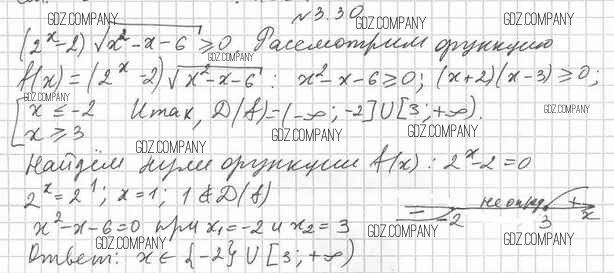 N 3.30
(2^x-2)√(x²-x-6) ≥ 0. Рассмотрим функцию
f(x) = (2^x-2)√(x²-x-6) : x²-x-6 ≥ 0; (x+2)(x-3) ≥ 0;
[x ≤ -2 Итак, D(f)=(-∞; -2]∪[3; +∞).
x ≥ 3
Найдём нули функции f(x): 2^x-2=0
2^x = 2^1; x=1; 1 ∉ D(f)
x²-x-6=0 при x₁=-2 и x₂=3
- 2 не опред. 3 + x
Ответ: x ∈ {-2} ∪ [3; +∞)
GDZ.COMPANY
GDZ.COMPANY
GDZ.COMPANY
GDZ.COMPANY
GDZ.COMPANY
GDZ.COMPANY
GDZ.COMPANY
GDZ.COMPANY
GDZ.COMPANY
GDZ.COMPANY
GDZ.COMPANY
GDZ.COMPANY